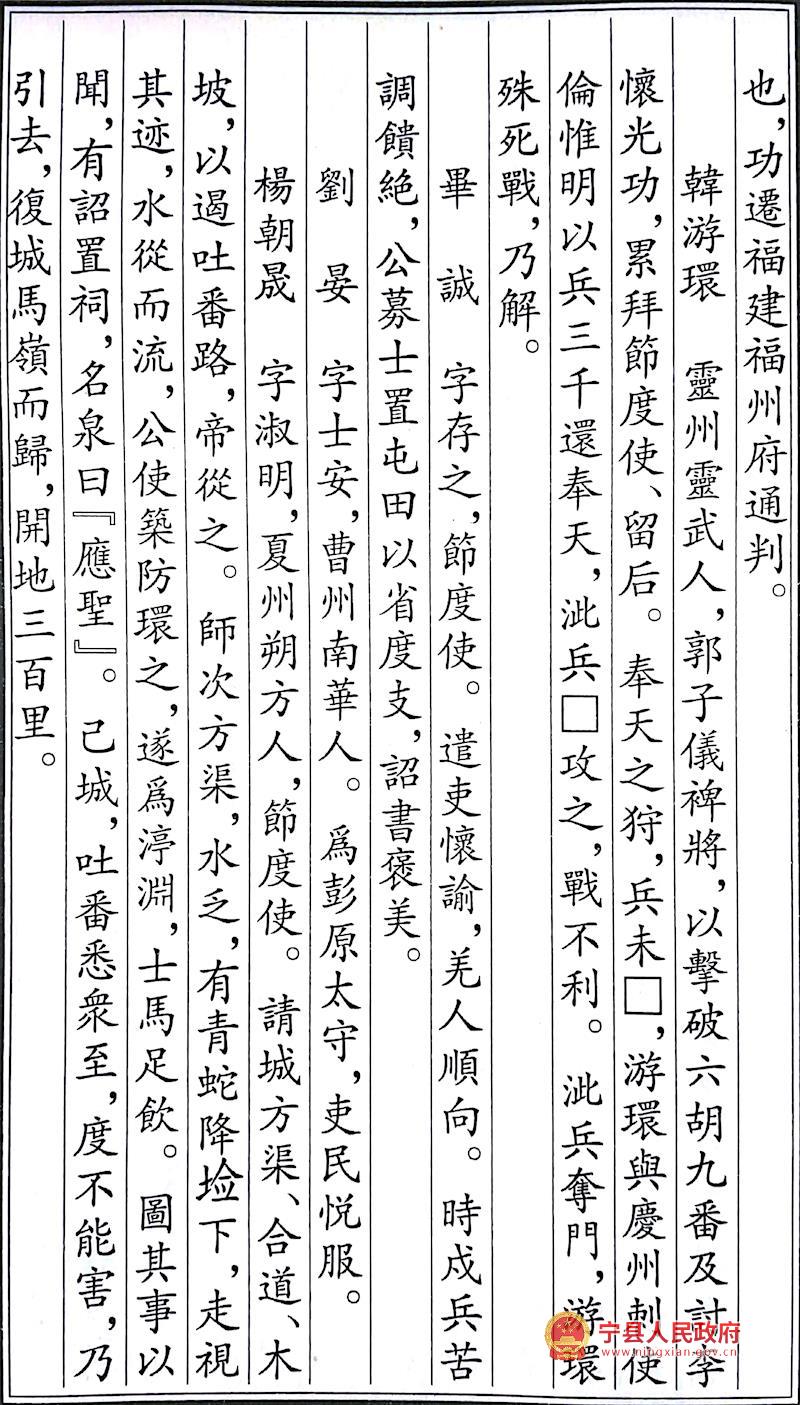 也，功遷福建福州府通判。
韓游環　靈州靈武人，郭子儀裨將，以擊破六胡九番及討李
懷光功，累拜節度使、留后。奉天之狩，兵未□，游環與慶州刺使
倫惟明以兵三千還奉天，泚兵□攻之，戰不利。泚兵奪門，游環
殊死戰，乃解。
畢　誠　字存之，節度使。遣吏懷諭，羌人順向。時戍兵苦
調饋絶，公募士置屯田以省度支，詔書褒美。
劉　晏　字士安，曹州南華人。爲彭原太守，吏民悦服。
楊朝晟　字淑明，夏州朔方人，節度使。請城方渠、合道、木
坡，以遏吐番路，帝從之。師次方渠，水乏，有青蛇降堿下，走視
其迹，水從而流，公使築防環之，遂爲渟淵，士馬足飲。圖其事以
聞，有詔置祠，名泉曰『應聖』。己城，吐番悉衆至，度不能害，乃
引去，復城馬嶺而歸，開地三百里。
宁县人民政府
www.ningxian.gov.cn